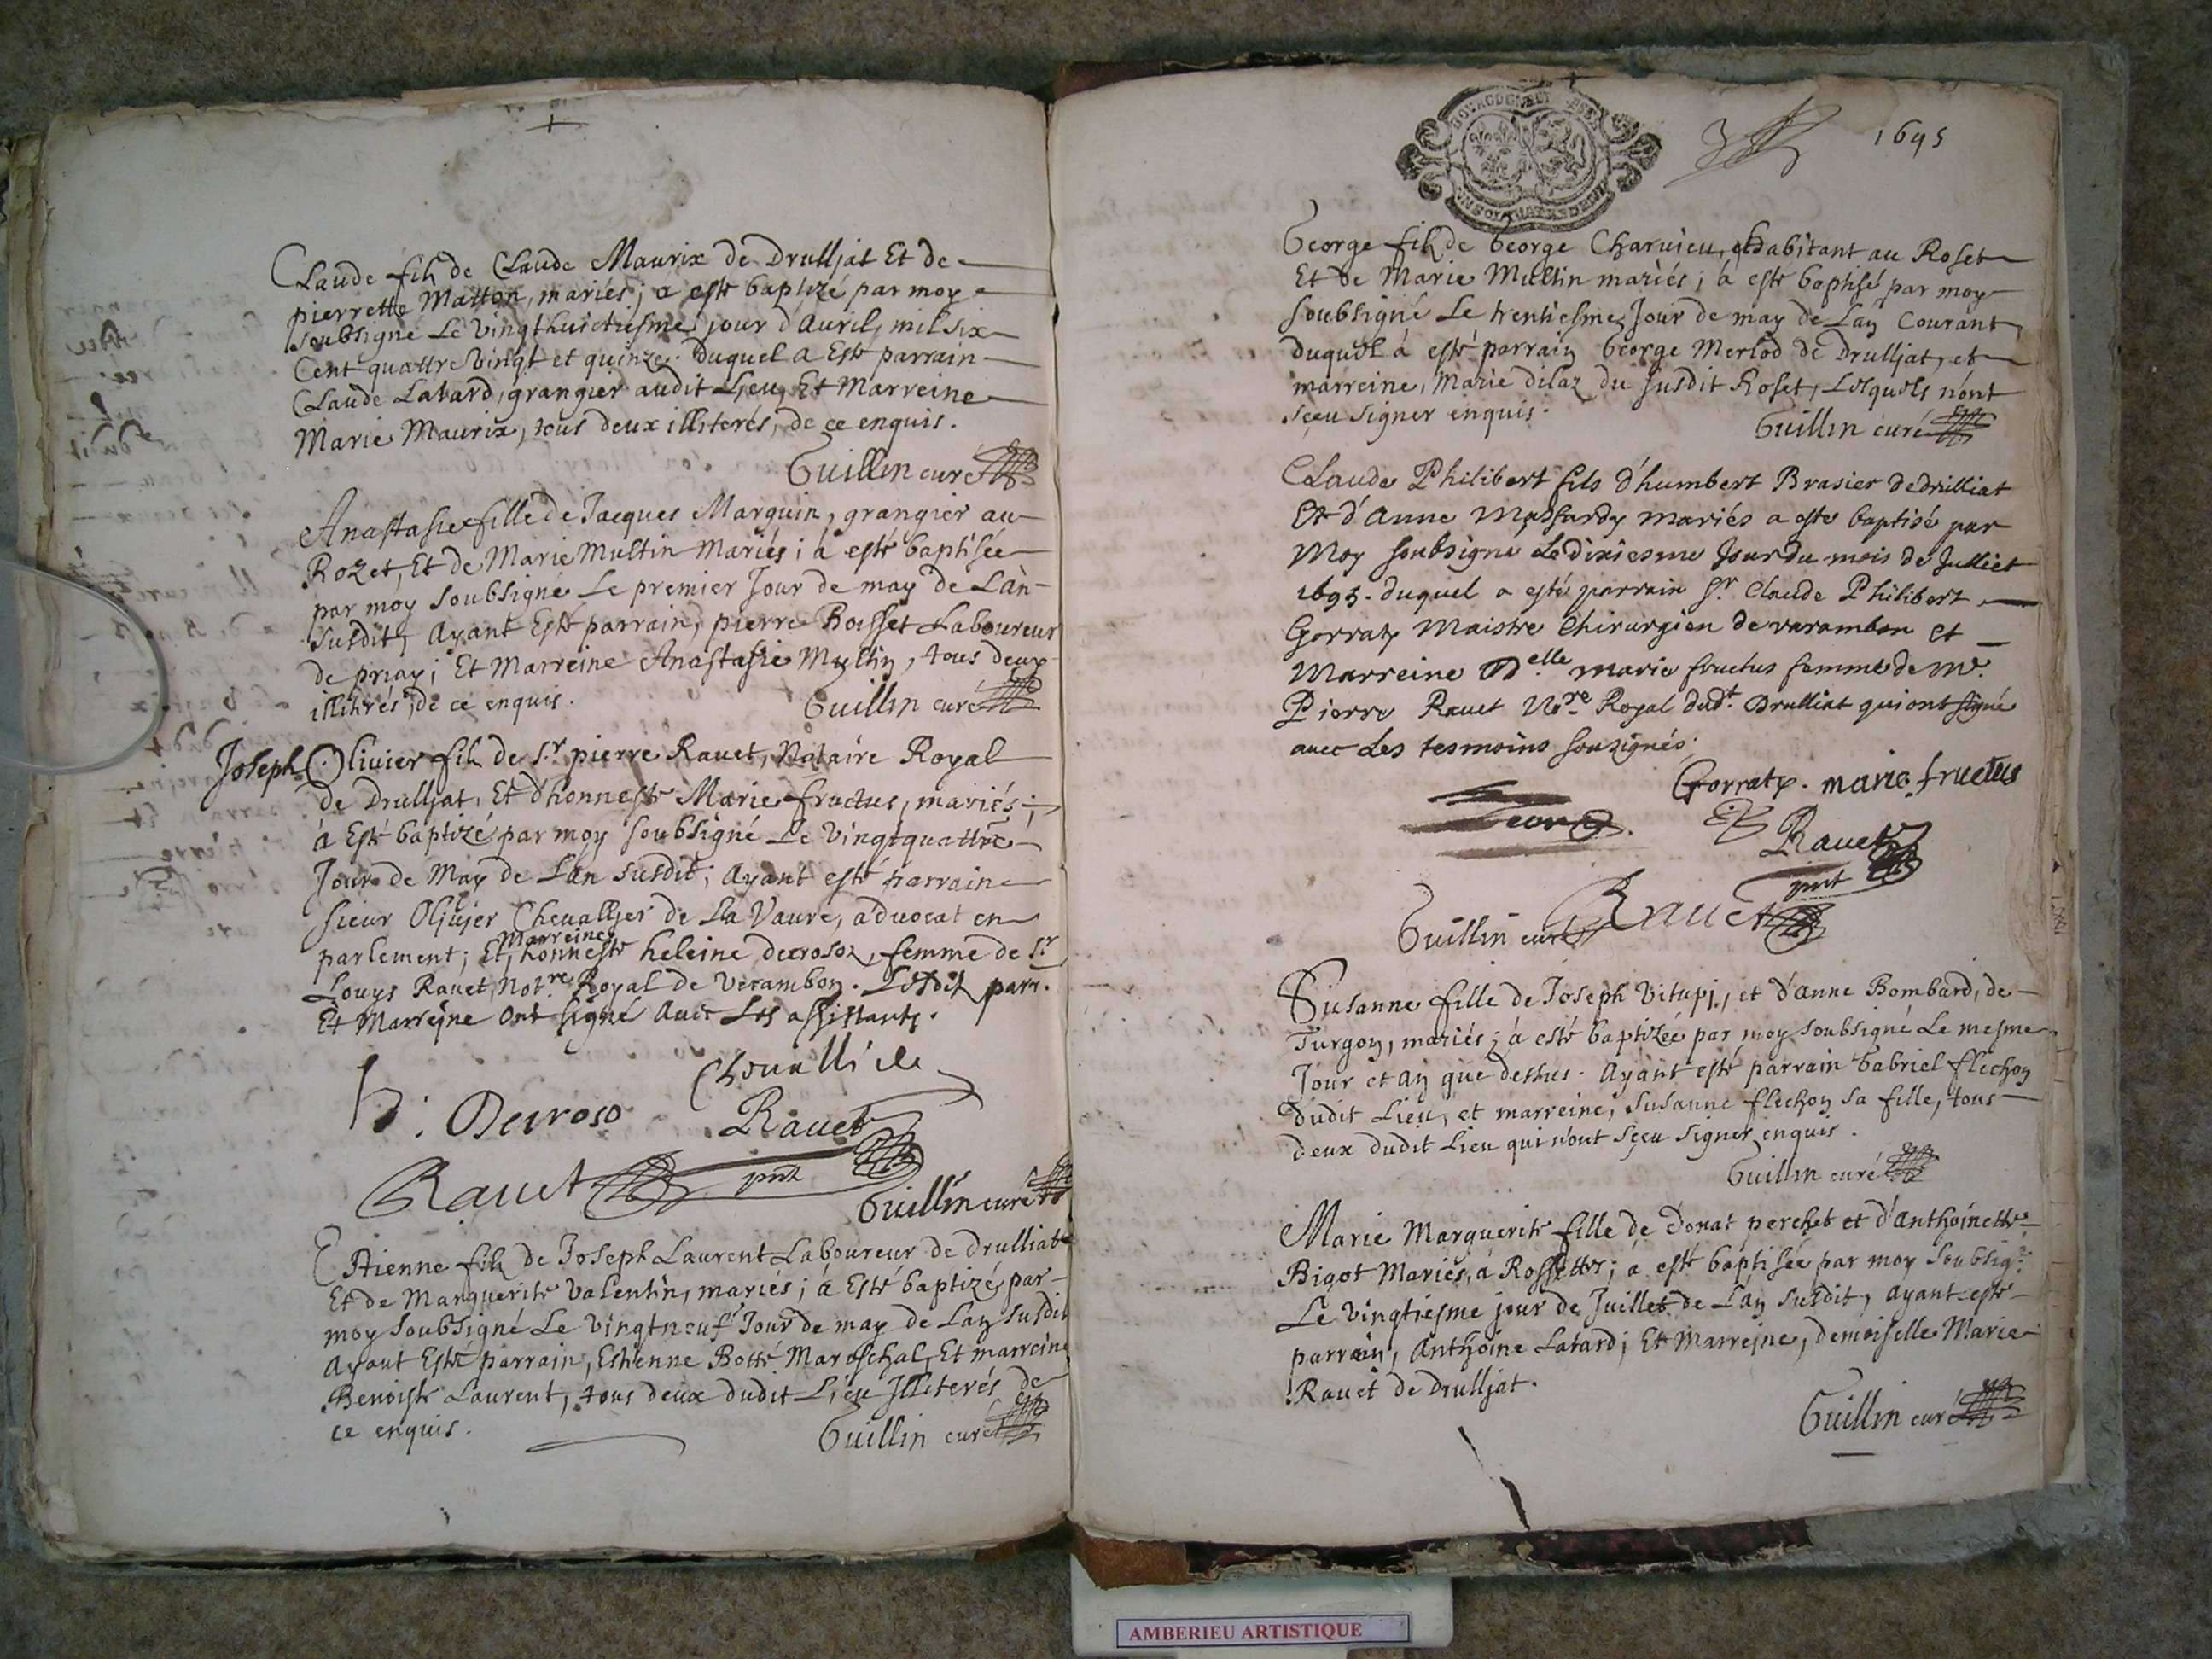 Claude fils de Claude Maurix de Drulljat Et de
pierrette Matton, mariés; a esté baptizé par moy
soubsigné Le vingthuictiesme jour d'Auril, mil six
Cent quattre vingt et quinze. Duquel a Esté parrain
Claude Labard, grangier audit Lieu, Et Marreine
Marie Maurix, tous deux illiterés, de ce enquis.
Guillin curé
Anastasie fille de Jacques Marguin, grangier au
Rozet, Et de Marie Multin Mariés; à esté baptisée
par moy soubsigné Le premier Jour de may de L'an
susdit, Ayant Esté parrain, pierre Boisset Laboureur
de priay; Et Marreine Anastasie Multin, tous deux
illitérés, de ce enquis.
Guillin curé
Joseph Olivier fils de Sr. pierre Rauet, Notaire Royal
de Drulljat, Et d'honneste Marie fructus, mariés;
à Esté baptizé par moy soubsigné Le Vingtquattre
Jour de May de L'an susdit; Ayant esté parrain
sieur Oljujer Cheualljer de La Vaure, aduocat en
parlement; Et Marreine honneste heleine decroso, femme de Sr.
Louys Rauet, Notre Royal de Verambon. Lesdit parr.
Et Marrejne Ont signé Auec Les assistants.
Cheuallier
h: Decroso Rauet
Rauet pnt
Guillin curé
Etienne fils de Joseph Laurent Laboureur de drulliat
Et de Marguerite Valentin, mariés; à Esté baptizé par
moy soubsigné Le Vingtneuf Jour de may de L'an susdit
Ayant Esté parrain, Estienne Botté Mareschal, Et marreine
Benoiste Laurent, tous deux dudit Lieu Illiterés de
ce enquis.
Guillin curé
1695
George fils de George Charuieu, habitant au Roset
Et de Marie Multin mariés; à esté baptisé par moy
soubsigné Le trentiesme Jour de may de L'an Courant
duquel à esté parrain George Merlod de Drulljat, et
marreine, Marie dilaz du susdit Roset, Lesquels n'ont
sçeu signer enquis.
Guillin curé
Claude Philibert fils d'humbert Brasier de drulliat
Et d'Anne Massardy mariés a esté baptisé par
Moy soubsigné Le dixiesme Jour du mois de Julliet
1695. duquel a esté parrain Sr. Claude Philibert
Gorraty Maistre Chirurgien de varambon et
Marreine Delle marie fructus femme de Me.
Pierre Rauet Nore Royal dudt. Drulliat qui ont signé
auec Les tesmoins souzignés.
Gorraty. marie fructus
curé
Rauet
pnt
Guillin curé Rauet
Susanne fille de Joseph Vitupj, et d'anne Bombard, de
Turgon, mariés; à esté baptizée par moy soubsigné Le mesme
Jour et an que dessus. Ayant esté parrain Gabriel flechon
dudit Lieu, et marreine, Susanne flechon sa fille, tous
deux dudit Lieu qui n'ont sçeu signer enquis.
Guillin curé
Marie Marguerite fille de Donat perchet et d'Anthoinette
Bigot Mariés, à Rossette; à esté baptisée par moy soubsig.
Le vingtiesme jour de Juillet de L'an susdit, ayant esté
parrain, Anthoine Labard; Et Marrejne, demoiselle Marie
Rauet de Drulljat.
Guillin curé
AMBERIEU ARTISTIQUE